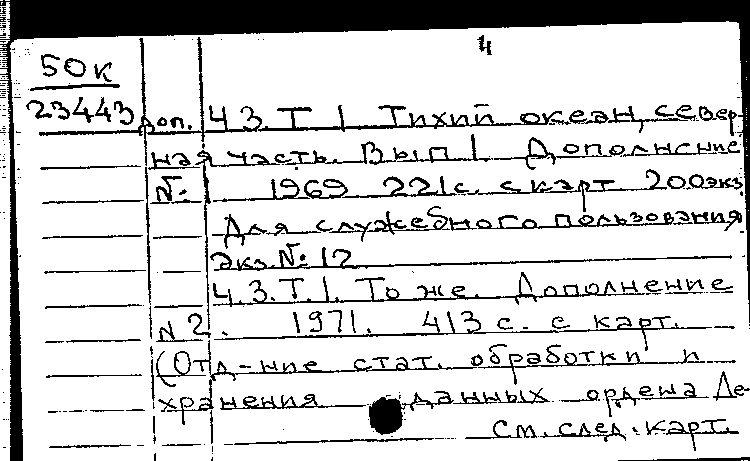 4
50к
23443 доп. Ч.3. Т 1 Тихий океан, север-
ная часть. Вып 1. Дополнение
№ 1 1969 221с. с карт. 200экз
Для служебного пользования
Экз. № 12
Ч.3.Т.1. То же. Дополнение
N 2. 1971. 413 с. с карт.
(Отд-ние стат. обработки и
хранения данных ордена Ле-
См. след. карт.